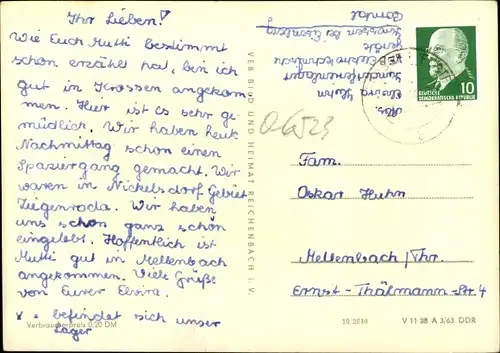 Ihr Lieben!
Wie Euch Mutti bestimmt
schon erzählt hat, bin ich
gut in Krossen angekom-
men. Hier ist es sehr ge-
mütlich. Wir haben heut
Nachmittag schon einen
Spaziergang gemacht. Wir
waren in Nickelsdorf Gebiet
Ziegenroda. Wir haben
uns schon ganz schön
eingelebt. Hoffentlich ist
Mutti gut in Mellenbach
angekommen. Viele Grüße
von Eurer Elvira.
x = befindet sich unser
Lager
Verbraucherpreis 0,20 DM
VEB BILD UND HEIMAT REICHENBACH i. V.
Abs.
Elvira
Huhn
Krossen bei Eisenberg
DEUTSCHE
DEMOKRATISCHE REPUBLIK
10
06523
Fam.
Oskar Huhn
Mellenbach/Thr.
Ernst-Thälmann-Str. 4
10/2819
V 11 28 A 3/63 DDR